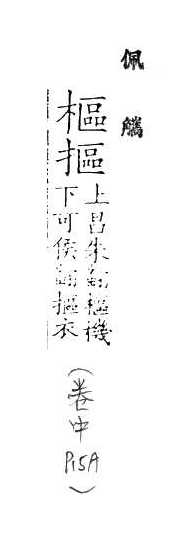 佩觿
樞摳
上昌朱翻樞機
下可侯翻摳衣
（卷中 P15A）